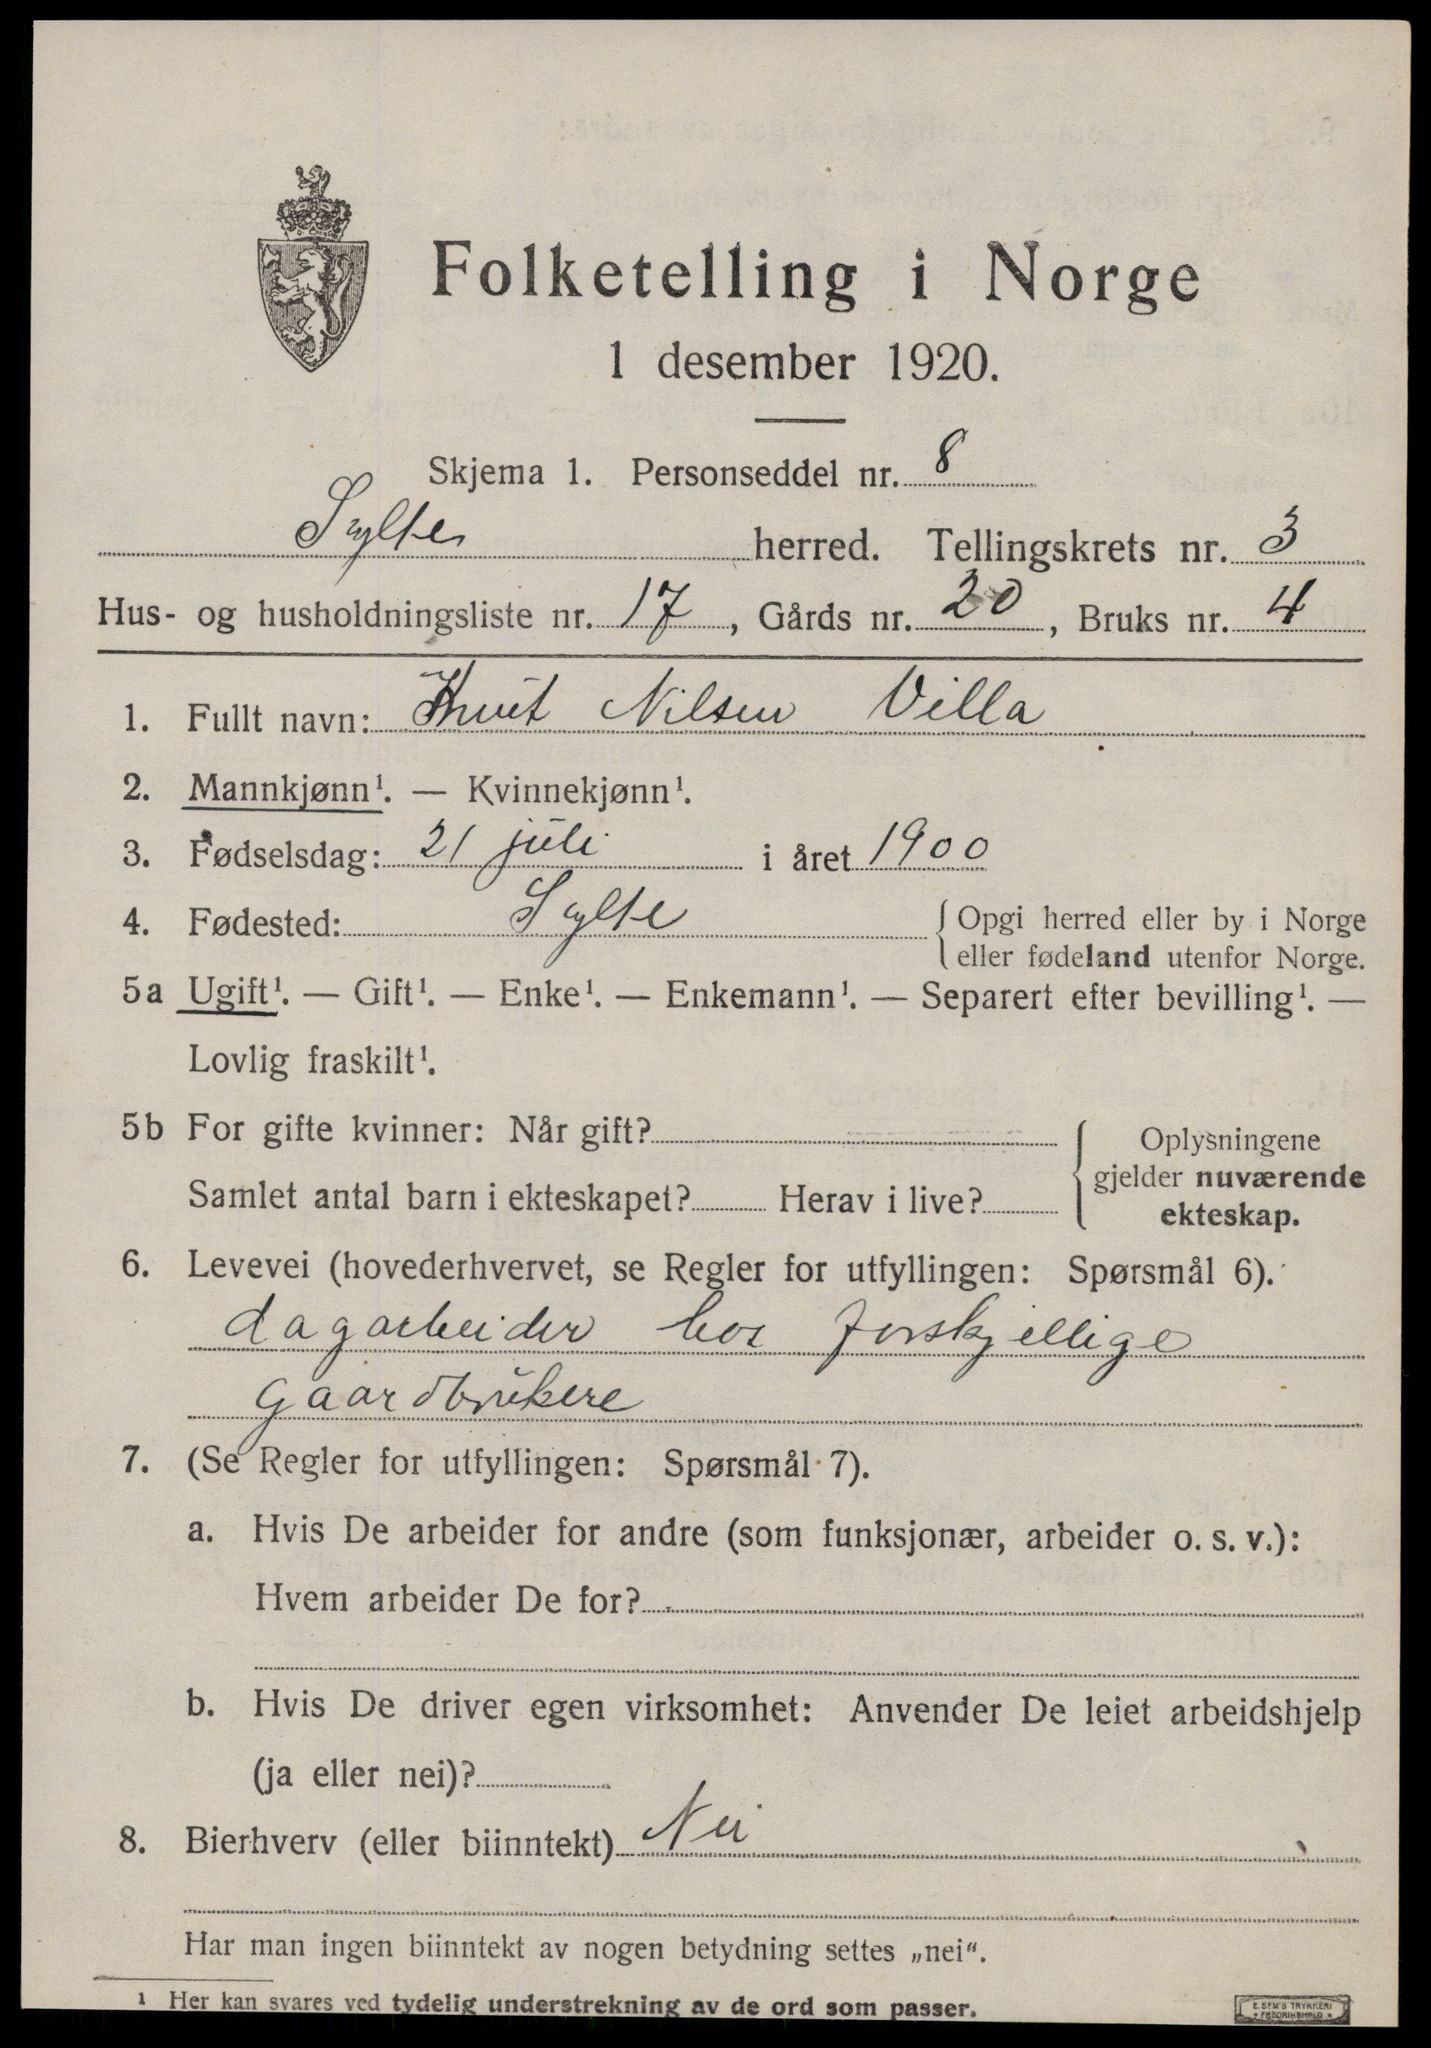 Folketelling i Norge
1 desember 1920.
Skjema 1. Personseddel nr. 8
Sylte herred. Tellingskrets nr. 3
Hus- og husholdningsliste nr. 17, Gårds nr. 20, Bruks nr. 4
1. Fullt navn: Knut Nilsen Villa
2. Mannkjønn¹. — Kvinnekjønn¹.
3. Fødselsdag: 21 juli i året 1900
4. Fødested: Sylte { Opgi herred eller by i Norge
eller fødeland utenfor Norge.
5a Ugift¹. — Gift¹. — Enke¹. — Enkemann¹. — Separert efter bevilling¹. —
Lovlig fraskilt¹.
5b For gifte kvinner: Når gift?
Samlet antal barn i ekteskapet? Herav i live?
Oplysningene
gjelder nuværende
ekteskap.
6. Levevei (hovederhvervet, se Regler for utfyllingen: Spørsmål 6).
dagarbeider hos forskjellige
gaardbrukere
7. (Se Regler for utfyllingen: Spørsmål 7).
a. Hvis De arbeider for andre (som funksjonær, arbeider o. s. v.):
Hvem arbeider De for?
b. Hvis De driver egen virksomhet: Anvender De leiet arbeidshjelp
(ja eller nei)?
8. Bierhverv (eller biinntekt) Nei
Har man ingen biinntekt av nogen betydning settes „nei“.
¹ Her kan svares ved tydelig understrekning av de ord som passer.
E. SEM'S TRYKKERI
* FREDRIKSHALD *